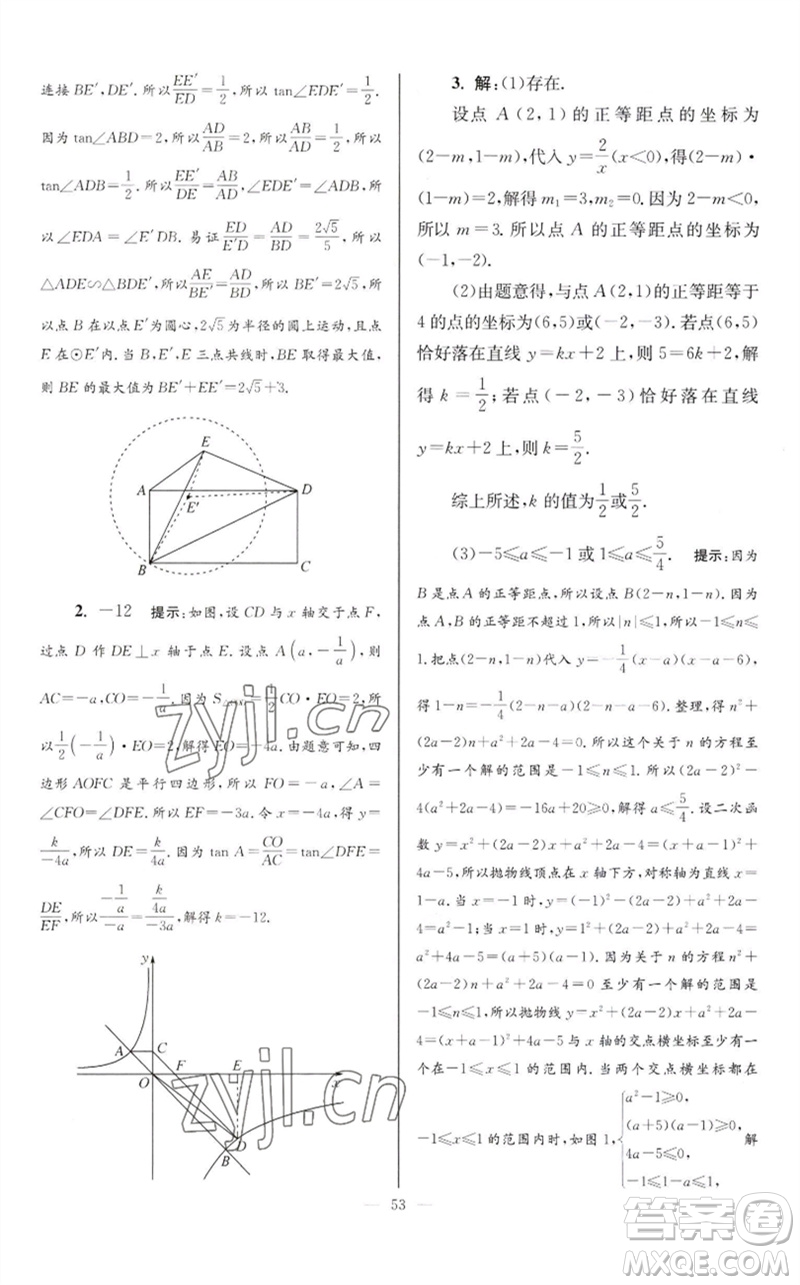 连接 BE′,DE′. 所以 EE′/ED=1/2,所以 tan∠EDE′=1/2.
因为 tan∠ABD=2,所以 AD/AB=2,所以 AB/AD=1/2,所以
tan∠ADB=1/2. 所以 EE′/DE=AB/AD,所以∠ADB=∠EDE′,所
以∠EDA=∠E′DB. 易证 ED/E′D=AD/BD=2√5/5,所以
△ADE∽△BDE′,所以 AE/BE′=AD/BD,所以 BE′=2√5,所
以点 B 在以点 E′为圆心,2√5为半径的圆上运动,且点
E 在⊙E′内. 当 B、E′、E 三点共线时,BE 取得最大值,
则 BE 的最大值为 BE′+EE′=2√5+3.
E
A
D
E′
B
C
2. −12 提示:如图,设 CD 与 x 轴交于点 F,
过点 D 作 DE⊥x 轴于点 E. 设点 A(a,−1/a),则
AC=−a,CO=−1/a. 因为 1/2CO·EO=2,所
以1/2(−1/a)·EO=2,解得 EO=−4a. 由题意可知,四
边形 AOFC 是平行四边形,所以 FO=−a,∠A=
∠CFO=∠DFE. 所以 EF=−3a. 令 x=−4a,得 y=
k/−4a,所以 DE=k/4a. 因为 tan A=CO/AC=tan∠DFE=
DE/EF,所以(−1/a)/−a=(k/4a)/−3a,解得 k=−12.
y
A
C
F
E
O
x
D
B
3. 解:(1)存在.
设点 A(2,1)的正等距点的坐标为
(2−m,1−m),代入 y=2/x(x<0),得(2−m)·
(1−m)=2,解得 m₁=3,m₂=0. 因为 2−m<0,
所以 m=3. 所以点 A 的正等距点的坐标为
(−1,−2).
(2)由题意得,与点 A(2,1)的正等距等于
4 的点的坐标为(6,5)或(−2,−3). 若点(6,5)
恰好落在直线 y=kx+2 上,则 5=6k+2,解
得 k=1/2;若点(−2,−3)恰好落在直线
y=kx+2 上,则 k=5/2.
综上所述,k 的值为1/2或5/2.
(3)−5≤a≤−1 或 1≤a≤5/4. 提示:因为
B 是点 A 的正等距点,所以设点 B(2−n,1−n). 因为
A、B 的正等距不超过 1,所以|n|≤1,所以−1≤n≤
1. 把点(2−n,1−n)代入 y=−1/4(x−a)(x−a−6),
得 1−n=−1/4(2−n−a)(2−n−a−6). 整理,得 n²+
(2a−2)n+a²+2a−4=0. 所以这个关于 n 的方程至
少有一个解的范围是−1≤n≤1. 所以Δ=(2a−2)²−
4(a²+2a−4)=−16a+20≥0,解得 a≤5/4. 设二次函
数 y=x²+(2a−2)x+a²+2a−4=(x+a−1)²+
4a−5,所以抛物线顶点在 x 轴下方,对称轴为直线 x=
1−a. 当 x=1 时,y=x²+(2a−2)x+a²+2a−4=
a²+4a−5=(a+5)(a−1);当 x=−1 时,y=x²+
(2a−2)x+a²+2a−4=a²−1. 因为关于 n 的方程 n²+
(2a−2)n+a²+2a−4=0 至少有一个解的范围是
−1≤n≤1,所以抛物线 y=x²+(2a−2)x+a²+2a−
4=(x+a−1)²+4a−5 与 x 轴的交点横坐标至少有一
个在−1≤x≤1 的范围内. 当两个交点横坐标都在
−1≤x≤1 的范围内时,如图 1,{a²−1≥0, (a+5)(a−1)≥0, 4a−5≤0, −1≤1−a≤1, 解
53
zyjl.cn
zyjl.cn
答案卷
MXQE.COM